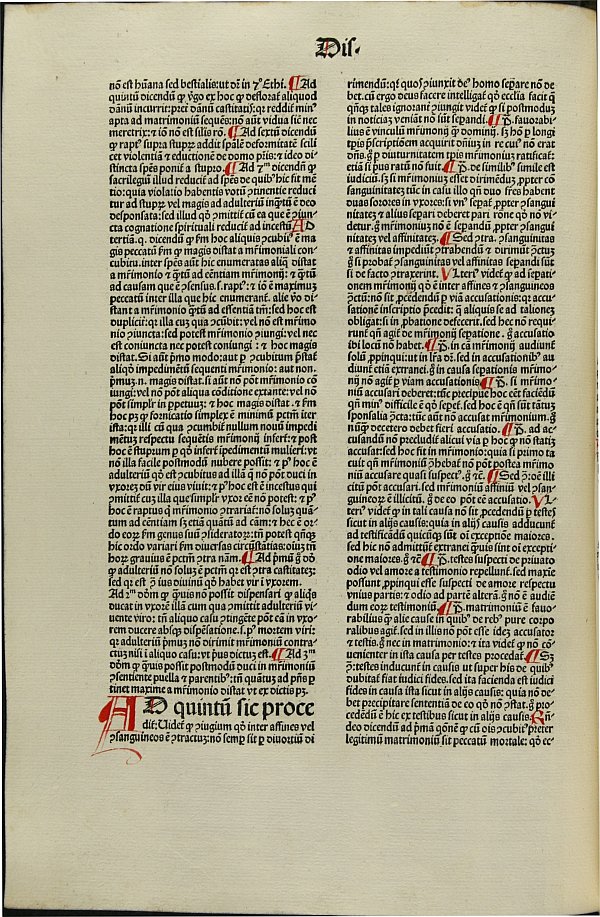 Dis.
nō est hūana sed bestialis: ut dr̄ in 7º Ethi. ¶ Ad
quintū dicendū ꝙ ꝟgo ex hoc ꝙ deflorat̄ aliquod
dānū incurrit: ꝓter dānū castitatꝭ: qꝛ reddit̄ minꝰ
apta ad matrimoniū sequēs: nō aūt vidua sic nec
meretrix: ⁊ iō nō est silis rō. ¶ Ad sextū dicendū
ꝙ raptꝰ supra stupꝝ addit spālē deformitatē scili
cet violentiā ⁊ eductionē de domo pr̄is: ⁊ ideo di-
stincta spēs ponit̄ a stupro. ¶ Ad 7ᵐ dicendū ꝙ
sacrilegiū illud reducit̄ ad spēs de quibꝰ hic fit mē
tio: quia violatio habentis votū ꝯtinentie reduci
tur ad stupꝝ vel magis ad adulteriū inqꝫtū ē deo
desponsata: sed illud qd̄ ꝯmittit̄ cū ea que ē ꝯiun-
cta cognatione spirituali reducit̄ ad incestū. AD
tertiā. q. dicendū ꝙ fm hoc aliquis ꝯcubitꝰ ē ma
gis peccatū fm ꝙ magis distat a mr̄imoniali con-
cubitu. inter spēs aūt hic enumeratas aliq̄ distat
a mr̄imonio ⁊ qꝫtū ad cēntiam mr̄imonij: ⁊ qꝫtū
ad causam que ē ꝯsensus. s. raptꝰ: ⁊ iō ē maximuꝫ
peccatū inter illa que hic enumerant̄. alie v̄o di-
stant a mr̄imonio qꝫtū ad essentiā tm̄: sed hoc est
duplicit̄: qꝛ illa cuꝫ qua ꝯcūbit̄: vel nō est mr̄imo
nio ꝯiuncta: sed potest mr̄imonio ꝯiungi: vel nec
est coniuncta nec potest coniungi: ⁊ hoc magis
distat. Si aūt p̄mo modo: aut ꝑ ꝯcubitum p̄stat̄
aliqd̄ impedimētū sequenti mr̄imonio: aut non.
p̄mum. n. magis distat. si aūt nō pōt mr̄imonio cō
iungi: vel nō pōt aliqua cōditione extante: vel nō
pōt simplr̄ in ꝑpetuuꝫ: ⁊ hoc magis distat. ⁊ fm
hoc pꝫ ꝙ fornicatio simplex ē minimū pctm̄ inter
ista: qꝛ illi cū qua ꝯcumbit̄ nullum nouū impedi
mētuꝫ respectu sequētis mr̄imonij infert̄: ⁊ post
hoc ē stuprum ꝑ qd̄ infert̄ ipedimentū mulieri: vt
nō illa facile postmodū nubere possit: ⁊ pꝰ hoc ē
adulteriū qd̄ est ꝯcubitus ad illā q̄ nō pōt duci in
vxorē dū vir eius viuit: ⁊ pꝰ hoc est ē incestus qui
ꝯmittit̄ cuꝫ illa que simplr̄ vxor ēē nō potest: ⁊ pꝰ
hoc ē raptus q̄ mr̄imonio ꝯtrariat̄: nō soluꝫ quā-
tum ad cēntiam sꝫ etiā quātū ad cām: ⁊ hec ē or-
do eoꝝ fm genus suū ꝯsideratoꝝ: tn̄ potest qn̄qꝫ
hic ordo variari fm diuersas circūstātias: oiuꝫ tn̄
hoꝝ grauius ē pctm̄ ꝯtra nām. ¶ Ad p̄mū g̊ dō
ꝙ adulteriū nō soluꝫ ē pctm̄ qꝛ est ꝯtra castitatē:
sed qꝛ est ꝯ̄ ius diuinū qd̄ habet vir ī vxorem.
Ad 2ᵐ dōm ꝙ qꝫuis nō possit dispensari ꝙ aliqͥs
ducat in vxorē illā cum qua ꝯmittit adulteriū vi-
uente viro: tn̄ aliquo casu ꝯtingēte pōt eā in vxo-
rem ducere absqꝫ dispēsatione. s. pꝰ mortem viri:
qꝛ adulteriū p̄muꝫ nō dirimit mr̄imoniū contra-
ctuꝫ nisi ī aliquo casu: vt pꝰus dictuꝫ est. ¶ Ad 3ᵐ
dōm ꝙ qꝫuis possit postmodū duci in mr̄imoniū
ꝯsentiente puella ⁊ parentibꝰ: tn̄ quātuꝫ ad pn̄s ꝑ
tinet maxime a mr̄imonio distat vt ex dictis pꝫ.
AD quintū sic proce
dit̄. Videt̄ ꝙ ꝯiugium qd̄ inter affines vel
ꝯsanguineos ē ꝯtractuꝫ: nō semꝑ sit ꝑ diuortiū di
rimendū: qꝛ quos ꝯiunxit deꝰ homo sep̄are nō de
bet. cū ergo deus facere intelligat̄ qd̄ ecclia facit q̄
qn̄qꝫ tales ignorāter ꝯiungit videt̄ ꝙ si postmoduꝫ
in noticiaꝫ veniāt nō sūt sepandi. ¶ P̄. fauorabi-
lius ē vinculū mr̄imonij ꝙ dominij. sꝫ hō ꝑ longi
tꝑis p̄scriptiōem acquirit dn̄ium in re cuiꝰ nō erat
dn̄s. g̊ ꝑ diuturnitatem tꝑis mr̄imonius ratificat̄:
etiā si pꝰus ratū nō fuit. ¶ P̄. de similibꝰ simile est
iudiciū. sꝫ si mr̄imoniuꝫ esset dirimēduꝫ ꝓpter cō
sanguinitatē tūc in casu illo qn̄ duo fr̄es habent
duas sorores in vxores: si vnꝰ sepat̄ ꝓpter ꝯsangui
nitateꝫ ⁊ alius separi deberet pari rōne qd̄ nō vi-
detur. g̊ mr̄imoniuꝫ nō ē sepandū ꝓpter ꝯsangui
nitatē vel affinitateꝫ. ¶ Sed ꝯtra. ꝯsanguinitas
⁊ affinitas impediūt ꝯtrahendū ⁊ dirimūt ꝯtctuꝫ
g̊ si probat̄ ꝯsanguinitas vel affinitas sepandi sūt
si de facto ꝯtraxerint. Vlteriꝰ videt̄ ꝙ ad sepati-
onem mr̄imonij qd̄ ē inter affines ⁊ ꝯsanguineos
ꝯctū: nō sit ꝓcedendū ꝑ viā accusationis: qꝛ accu-
sationē inscriptio p̄cedit: q̄ aliquis se ad talionez
obligat: si in ꝓbatione defecerit. sed hec nō requi-
runt̄ qn̄ agit̄ de mr̄imonij sepatione. g̊ accusatio
ibi locū nō habet. ¶ P̄. in cā mr̄imonij audiunt̄
solū ꝓpinqui: ut in lr̄a dr̄. sed in accusationibꝰ au
diunt̄ etiā extranei. g̊ in causa sepationis mr̄imo-
nij nō agit̄ ꝑ viam accusationis. ¶ P̄. si mr̄imo-
niū accusari deberet: tūc precipue hoc cēt faciēdū
qn̄ minꝰ difficile ē qd̄ sepet̄. sed hoc ē qn̄ sūt tātuꝫ
sponsalia ꝯcta: tūc aūt nō accusat̄ mr̄imonium. g̊
nūqꝫ decetero debet fieri accusatio. ¶ P̄. ad ac-
cusandū nō precludit̄ alicui via ꝑ hoc ꝙ nō statiꝫ
accusat. sed hoc fit in mr̄imonio: quia si primo ta
cuit qn̄ mr̄imoniū ꝯhebat̄ nō pōt postea mr̄imo
niū accusare quasi suspectꝰ. g̊ ⁊c. ¶ Sed ꝯ̄: oē illi
citū pōt accusari. sed mr̄imoniū affiniū vel ꝯsan-
guineoꝝ ē illicitū. g̊ de eo pōt ēē accusatio. Vl-
teriꝰ videt̄ ꝙ in tali causa nō sit ꝓcedendū ꝑ testes
sicut in alijs causis: quia in alijs causis adducunt̄
ad testificādū quicūqꝫ sūt oī exceptiōe maiores.
sed hic nō admittūt̄ extranei qꝫuis sint oī excepti-
one maiores. g̊ ⁊c. ¶ P̄. testes suspecti de priuato
odio vel amore a testimonio repellunt̄. sed maxīe
possunt ꝓpinqui esse suspecti de amore respectu
vnius partis: ⁊ odio ad partē alterā. g̊ nō ē audiē
dum eoꝝ testimoniū. ¶ P̄. matrimoniū ē fauo-
rabilius ꝙ alie cause in quibꝰ de rebꝰ pure corpo
ralibus agit̄. sed in illis nō pōt esse idē accusator
⁊ testis. g̊ nec in matrimonio: ⁊ ita videt̄ ꝙ nō cō-
uenienter in ista causa per testes procedat̄. ¶ Sꝫ
ꝯ̄: testes inducunt̄ in causis ut super his de quibꝰ
dubitat̄ fiat iudici fides. sed ita facienda est iudici
fides in causa ista sicut in alijs causis: quia nō de-
bet precipitare sententiā de eo qd̄ nō ꝯstat. g̊ pro-
cedēdū ē hic ex testibus sicut in alijs causis. Rn̄-
deo dicendū ad p̄mā qōnē ꝙ cū oīs ꝯcubitꝰ preter
legitimū matrimoniū sit peccatū mortale: qd̄ ec-